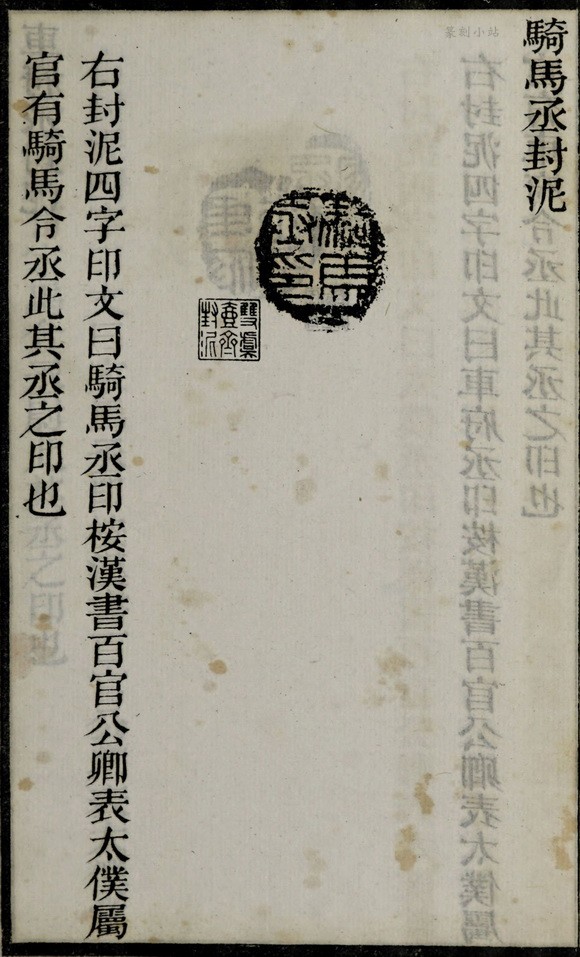 騎馬丞封泥
篆刻小站
雙虞
壺齋
封泥
右封泥四字印文曰騎馬丞印桉漢書百官公卿表太僕屬
官有騎馬令丞此其丞之印也